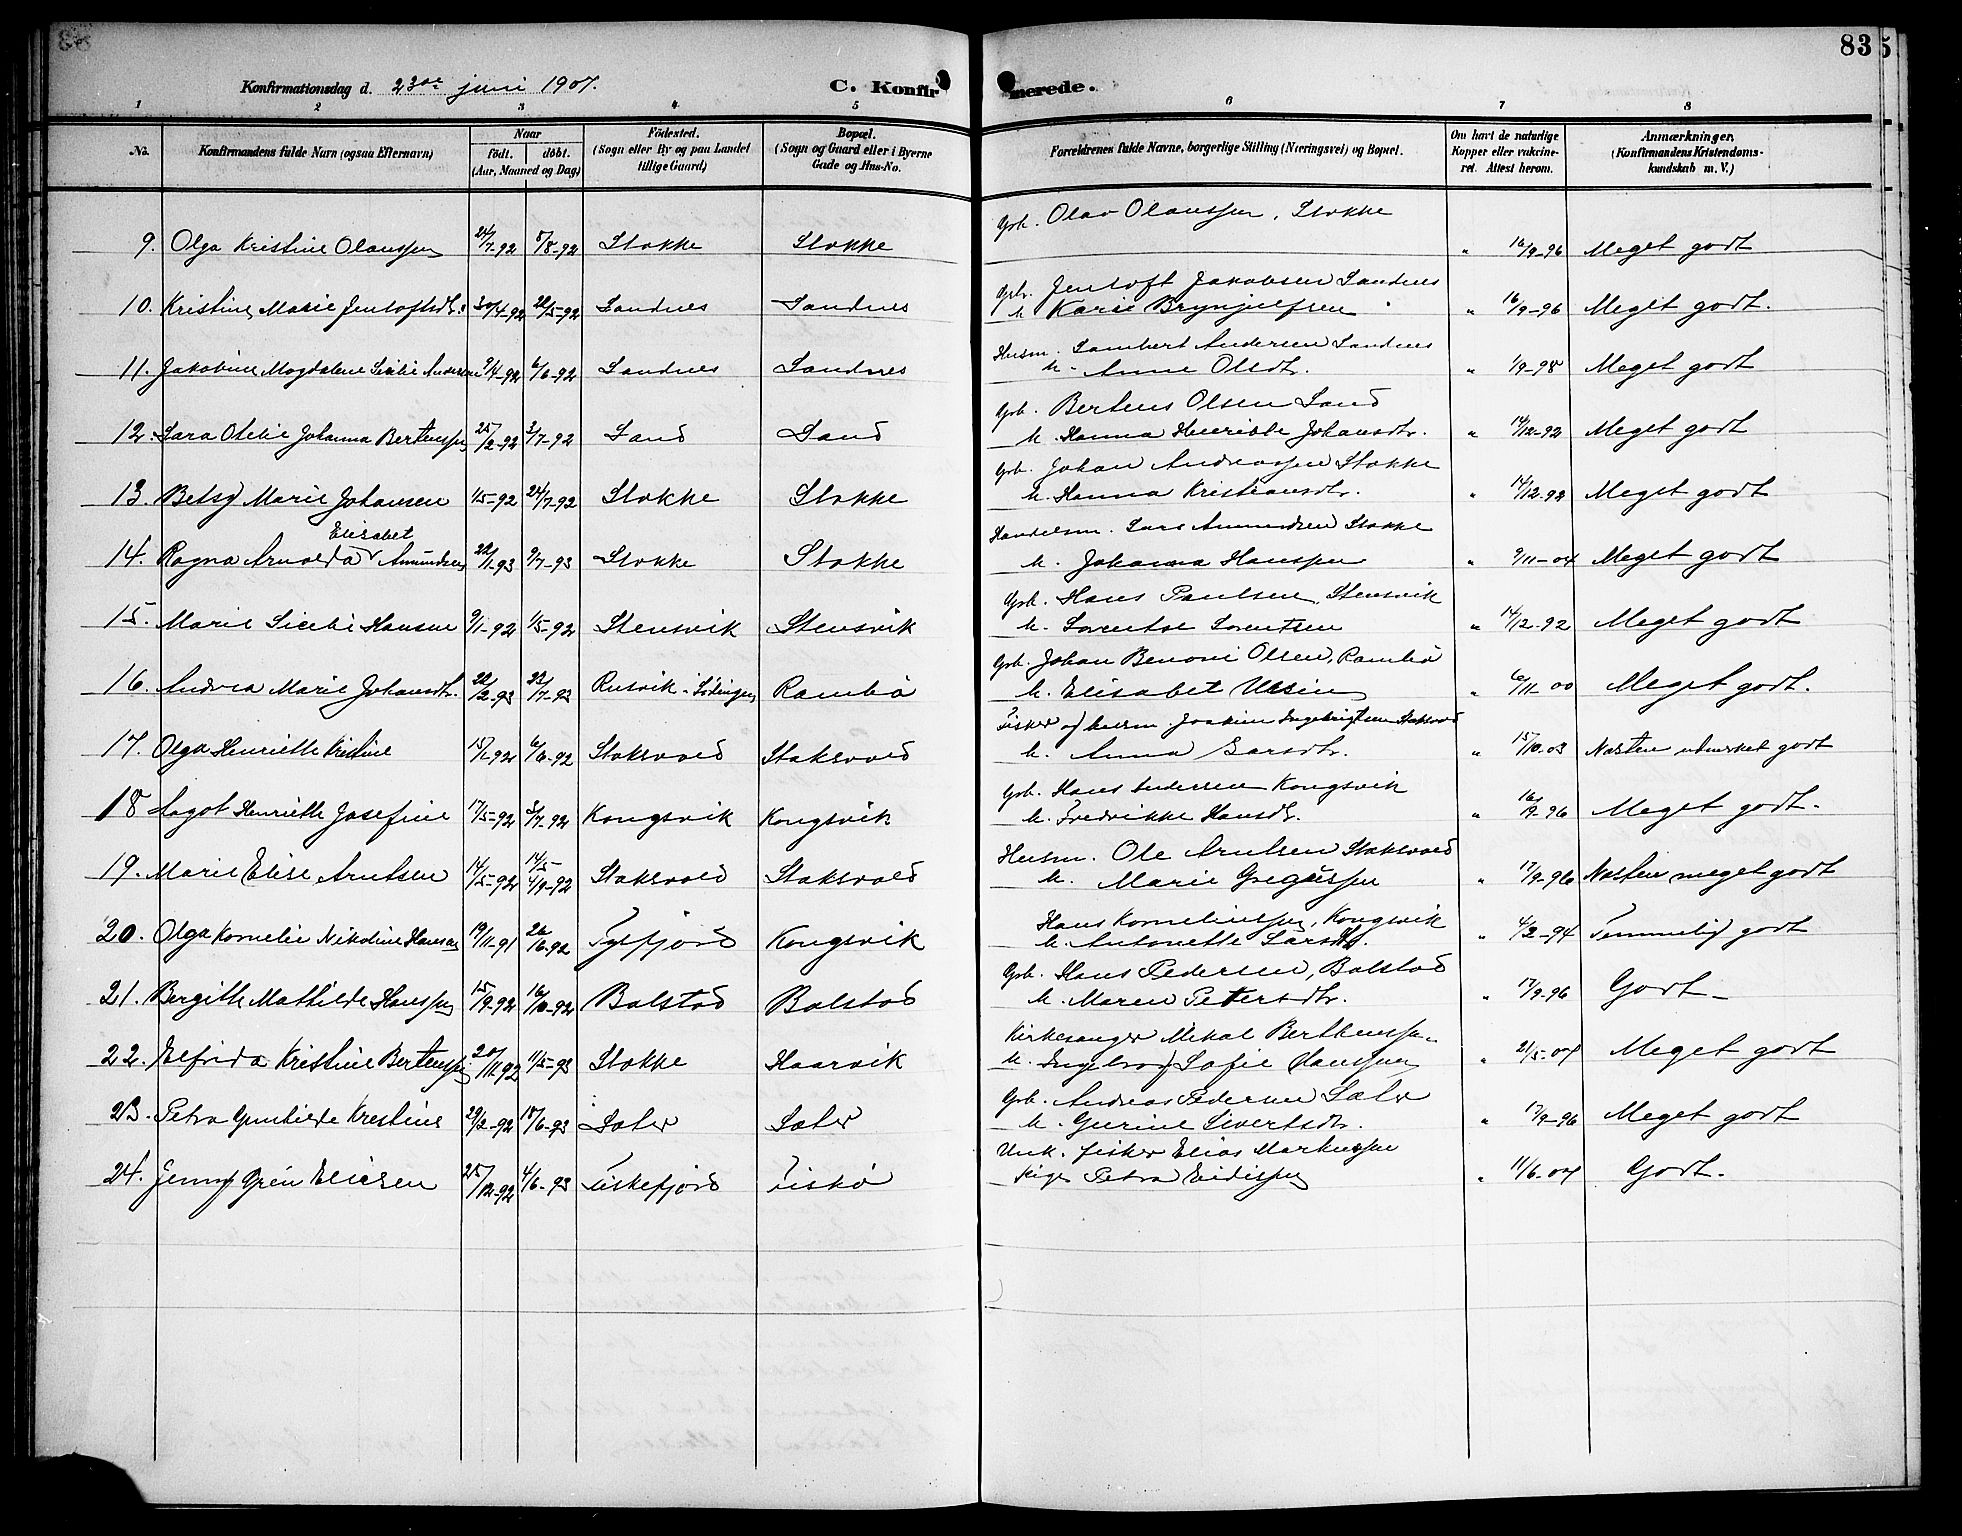 83
Konfirmationsdag d. 23de juni 1907.
C. Konfirmerede.
1 2 3 4 5 6 7 8
No.
Konfirmandens fulde Navn (ogsaa Efternavn)
Naar
födt. döbt.
(Aar, Maaned og Dag)
Födested.
(Sogn eller By og paa Landet
tillige Gaard)
Bopæl.
(Sogn og Gaard eller i Byerne
Gade og Hus-No.
Forældrenes fulde Navne, borgerlige Stilling (Næringsvei) og Bopæl.
Om havt de naturlige
Kopper eller vakcine-
ret. Attest herom.
Anmærkninger.
(Konfirmandens Kristendoms-
kundskab m. V.)
Gbr. Olav Olaussen, Stokke
9. Olga Kristine Olaussen 24/7-92 5/8-92 Stokke Stokke " 16/9-96 Meget godt
Gbr. Jentoft Jakobsen Sandnes
10. Kristine Marie Jentoftsdt. 30/4-92 22/5-92 Sandnes Sandnes h. Karie Brynjulfsen " " 16/9-96 Meget godt.
Husm. Lambert Andersen Sandnes
11. Jakobine Magdalene Sicilie Andersen 9/4-92 6/6-92 Sandnes Sandnes h. Anne Olsdt. " 1/9-98 Meget godt
Gbr. Bertens Olsen Sand
12. Sara Otelie Johanna Bertenssen 25/2-92 3/7-92 Sand Sand h. Hanna Henrikke Johansdt. " 14/12-92 Meget godt
Gbr. Johan Andreassen Stokke
13. Betsy Marie Johansen 1/5-92 24/7-92 Stokke Stokke h. Hanna Kristiansdt. " 14/12-92 Meget godt
Handelsm. Lars Amundsen Stokke
Elisabet
14. Ragna Arnolda Amundsen 22/1-93 9/7-93 Stokke Stokke h. Johanna Hanssen " 9/11-04 Meget godt
Gbr. Hans Paulsen, Stensvik
15. Marie Sicilie Hansen 9/1-92 1/5-92 Stensvik Stensvik h. Lorentse Lorentsen " 14/12-92 Meget godt
Gbr. Johan Benoni Olsen, Rambø
16. Andrea Marie Johansdt. 22/2-93 23/7-93 Rusvik i Lødingen Rambø h. Elisabet Ursin " 6/11-00 Meget godt.
Fisker og husm. Joakim Ingebrigtsen Staksvold
17. Olga Henriette Kristine 15/1-92 6/6-92 Staksvold Staksvold h. Anna Larsdt. " 15/10-03 Næsten udmerket godt
Gbr. Hans Andersen Kongsvik
18 Hagot Henriette Josefine 17/5-92 3/7-92 Kongsvik Kongsvik h. Fredrikke Hansdt. " 16/9-96 Meget godt.
Husm. Ole Arntsen Staksvold
19. Marie Elise Arntsen 14/5-92 14/5 4/9-92 Staksvold Staksvold h. Marie Gregussen " 17/9-96 Næsten meget godt
Hans Korneliussen, Kongsvik
20. Olga Kornelie Nikoline Hansen 19/11-91 26/6-92 Tysfjord Kongsvik h. Antonette Larsdt. " 4/2-94 Temmelig godt
Gbr. Hans Pedersen, Balstad
21. Bergitte Mathilde Hanssen 15/9-92 16/10-92 Balstad Balstad h. Maren Petersdtr. " 17/9-96 Godt
Kirkesanger Mikal Berthenssen
22. Elfrida Kristine Bertenssen 20/11 92 11/5-93 Stokke Haarvik h. Ingeborg Sofie Hanssen " 21/5-07 Meget godt
Gbr. Andreas Pedersen Sæter
23. Petra Gunhilde Kristine 29/2-92 18/6-93 Sæter Sæter h. Gurine Sivertsdt. " 17/9-96 Meget godt
Unk. fisker Elias Markussen
24. Jenny Eliesen 25/12-92 4/6-93 Fiskefjord Fiskø Pige Petra Eidissen " 11/6-07 Godt.